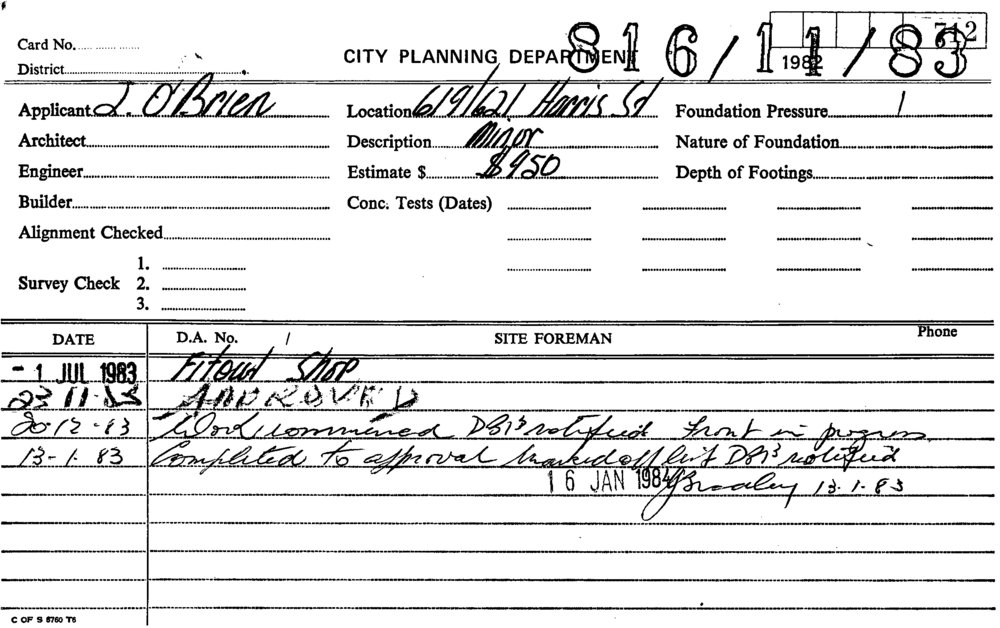 Card No.
712
District
CITY PLANNING DEPARTMENT
1982
816/11/83
Applicant J. O'Brien
Location 619/621 Harris St
Foundation Pressure
Architect
Description Minor
Nature of Foundation
Engineer
Estimate $ $950
Depth of Footings
Builder
Conc. Tests (Dates)
Alignment Checked
Survey Check
1.
2.
3.
DATE
D.A. No. /
SITE FOREMAN
Phone
- 1 JUL 1983
Fitout Shop
23 11 83
APPROVED
20.12.83
Work commenced DBI3 notified Front in progress
13-1.83
Completed to approval marked off list DBI3 notified
16 JAN 1984
Bradley 13.1.83
C OF S 5760 T6